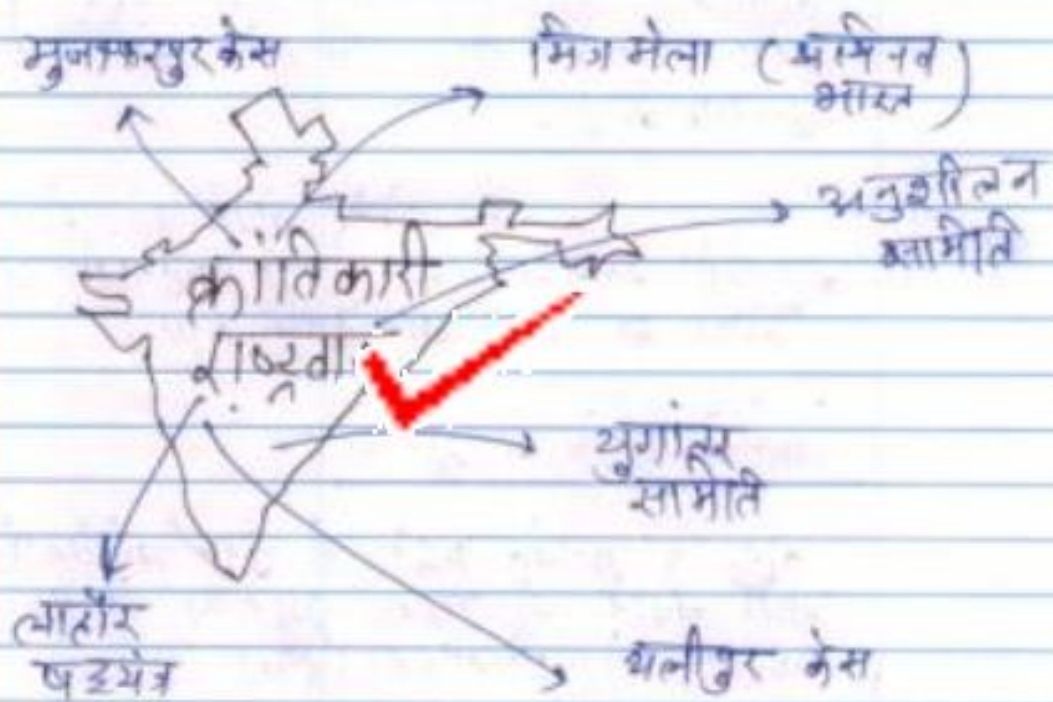 मुजफ्फरपुर केस
मित्र मेला (अभिनव
भारत)
अनुशीलन
समिति
क्रांतिकारी
राष्ट्रवा
युगांतर
समिति
लाहौर
षडयंत्र
अलीपुर केस